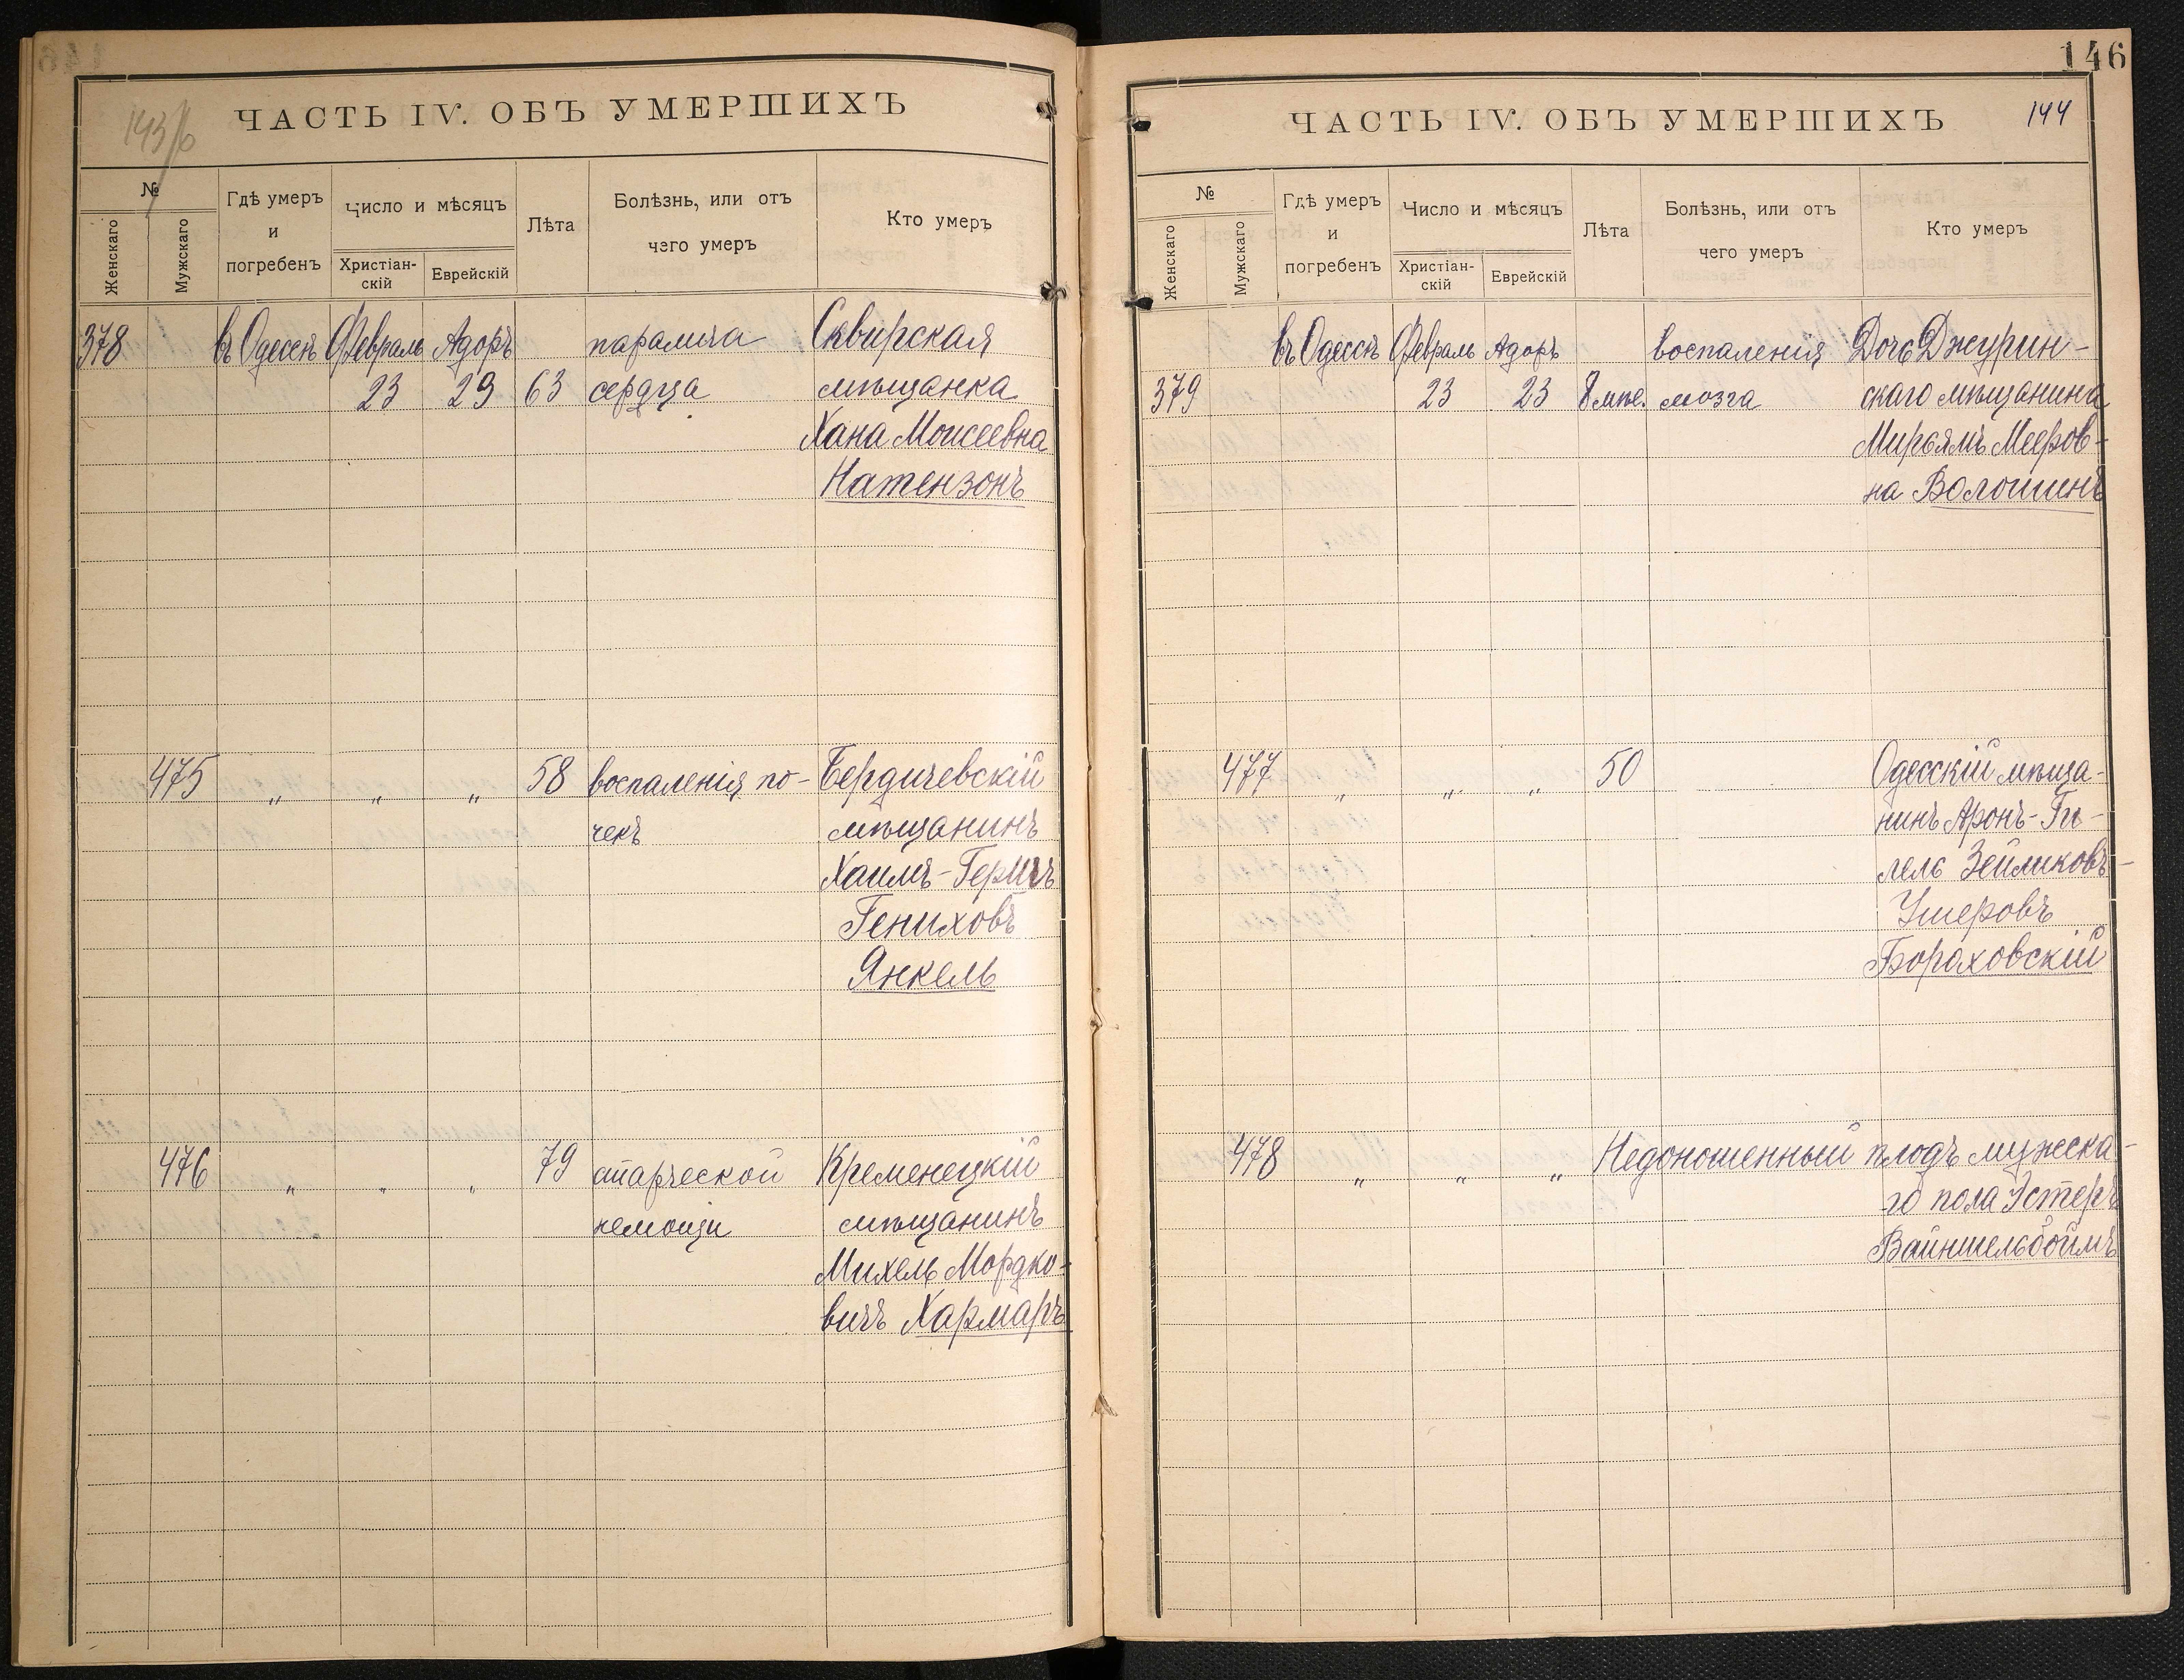 143/б
ЧАСТЬ IV. ОБЪ УМЕРШИХЪ
№
Женскаго
Мужскаго
Гдѣ умеръ
и
погребенъ
Число и мѣсяцъ
Христіан-
скій
Еврейскій
Лѣта
Болѣзнь, или отъ
чего умеръ
Кто умеръ
378 въ Одессѣ Февраль Адоръ паралича Сквирская
23 29 63 сердца мѣщанка
Хана Моисеевна
Натензонъ
475 " " " 58 воспаленія по- Бердичевскій
чекъ мѣщанинъ
Хаимъ-Гершъ
Гениховъ
Янкель
476 " " " 79 старческой Кременецкій
немощи мѣщанинъ
Михель Мордко-
вичъ Хармаръ
146
ЧАСТЬ IV. ОБЪ УМЕРШИХЪ 144
№
Женскаго
Мужскаго
Гдѣ умеръ
и
погребенъ
Число и мѣсяцъ
Христіан-
скій
Еврейскій
Лѣта
Болѣзнь, или отъ
чего умеръ
Кто умеръ
въ Одессѣ Февраль Адоръ воспаленія Дочь Джурин-
379 23 23 8 мѣс. мозга скаго мѣщанина
Мирьямъ Мееров-
на Волошинъ
477 " " " 50 Одесскій мѣща-
нинъ Аронъ-Ги-
лель Зейликовъ-
Ушеровъ
Бораховскій
478 " " " Недоношенный плодъ мужеска-
го пола Эстеръ
Вайншельбоймъ